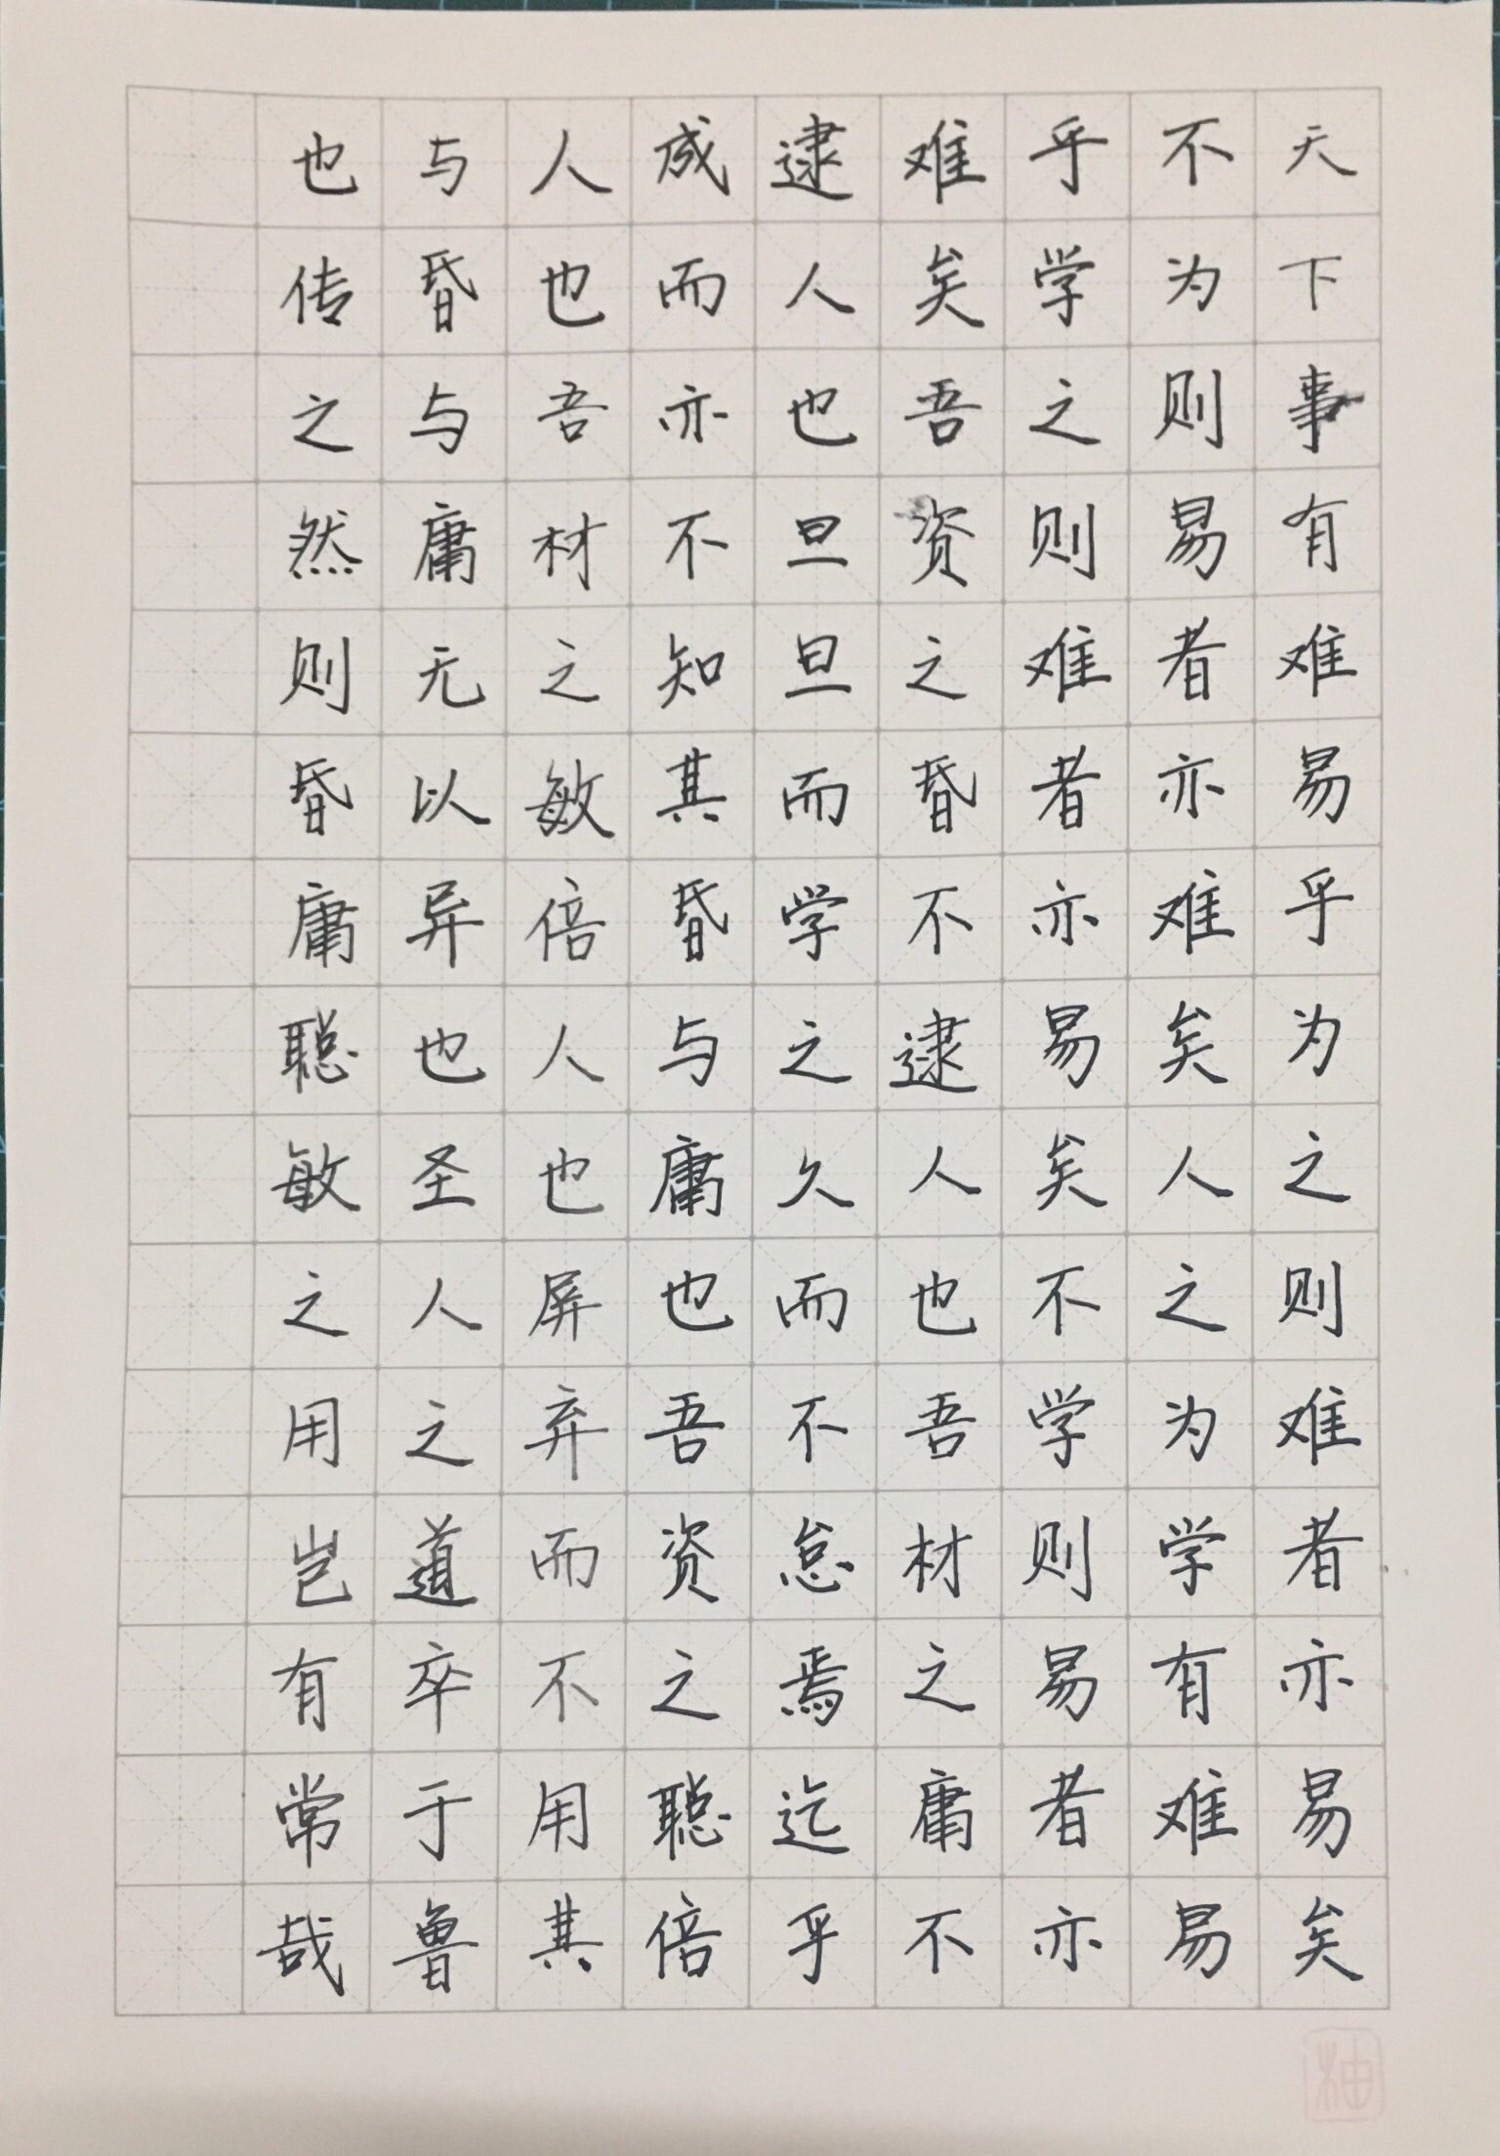 天下事有难易乎为之则难者亦易矣
不为则易者亦难矣人之为学有难易
乎学之则难者亦易矣不学则易者亦
难矣吾资之昏不逮人也吾材之庸不
逮人也旦旦而学之久而不怠焉迄乎
成而亦不知其昏与庸也吾资之聪倍
人也吾材之敏倍人也屏弃而不用其
与昏与庸无以异也圣人之道卒于鲁
也传之然则昏庸聪敏之用岂有常哉
柚